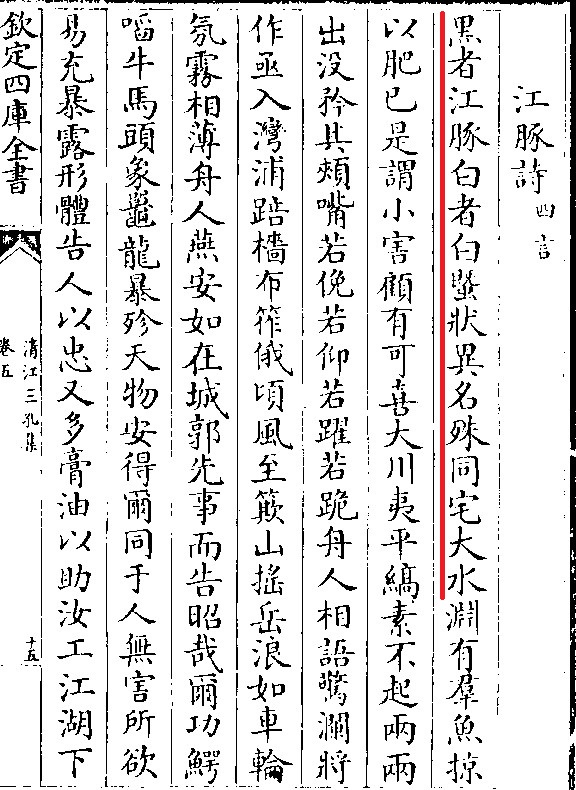 江豚詩四言
黑者江豚白者白䱐狀異名殊同宅大水淵有羣魚掠
以肥已是謂小害顧有可喜大川夷平縞素不起兩兩
出没矜其頰嘴若俛若仰若躍若跪舟人相語驚瀾將
作亟入灣浦踣檣布筰俄頃風至簸山揺岳浪如車輪
氛霧相薄舟人燕安如在城郭先事而告昭哉爾功鰐
啗牛馬頭象鼉龍暴殄天物安得爾同于人無害所欲
易充暴露形體告人以忠又多膏油以助汝工江湖下
欽定四庫全書
清江三孔集
卷五
十五